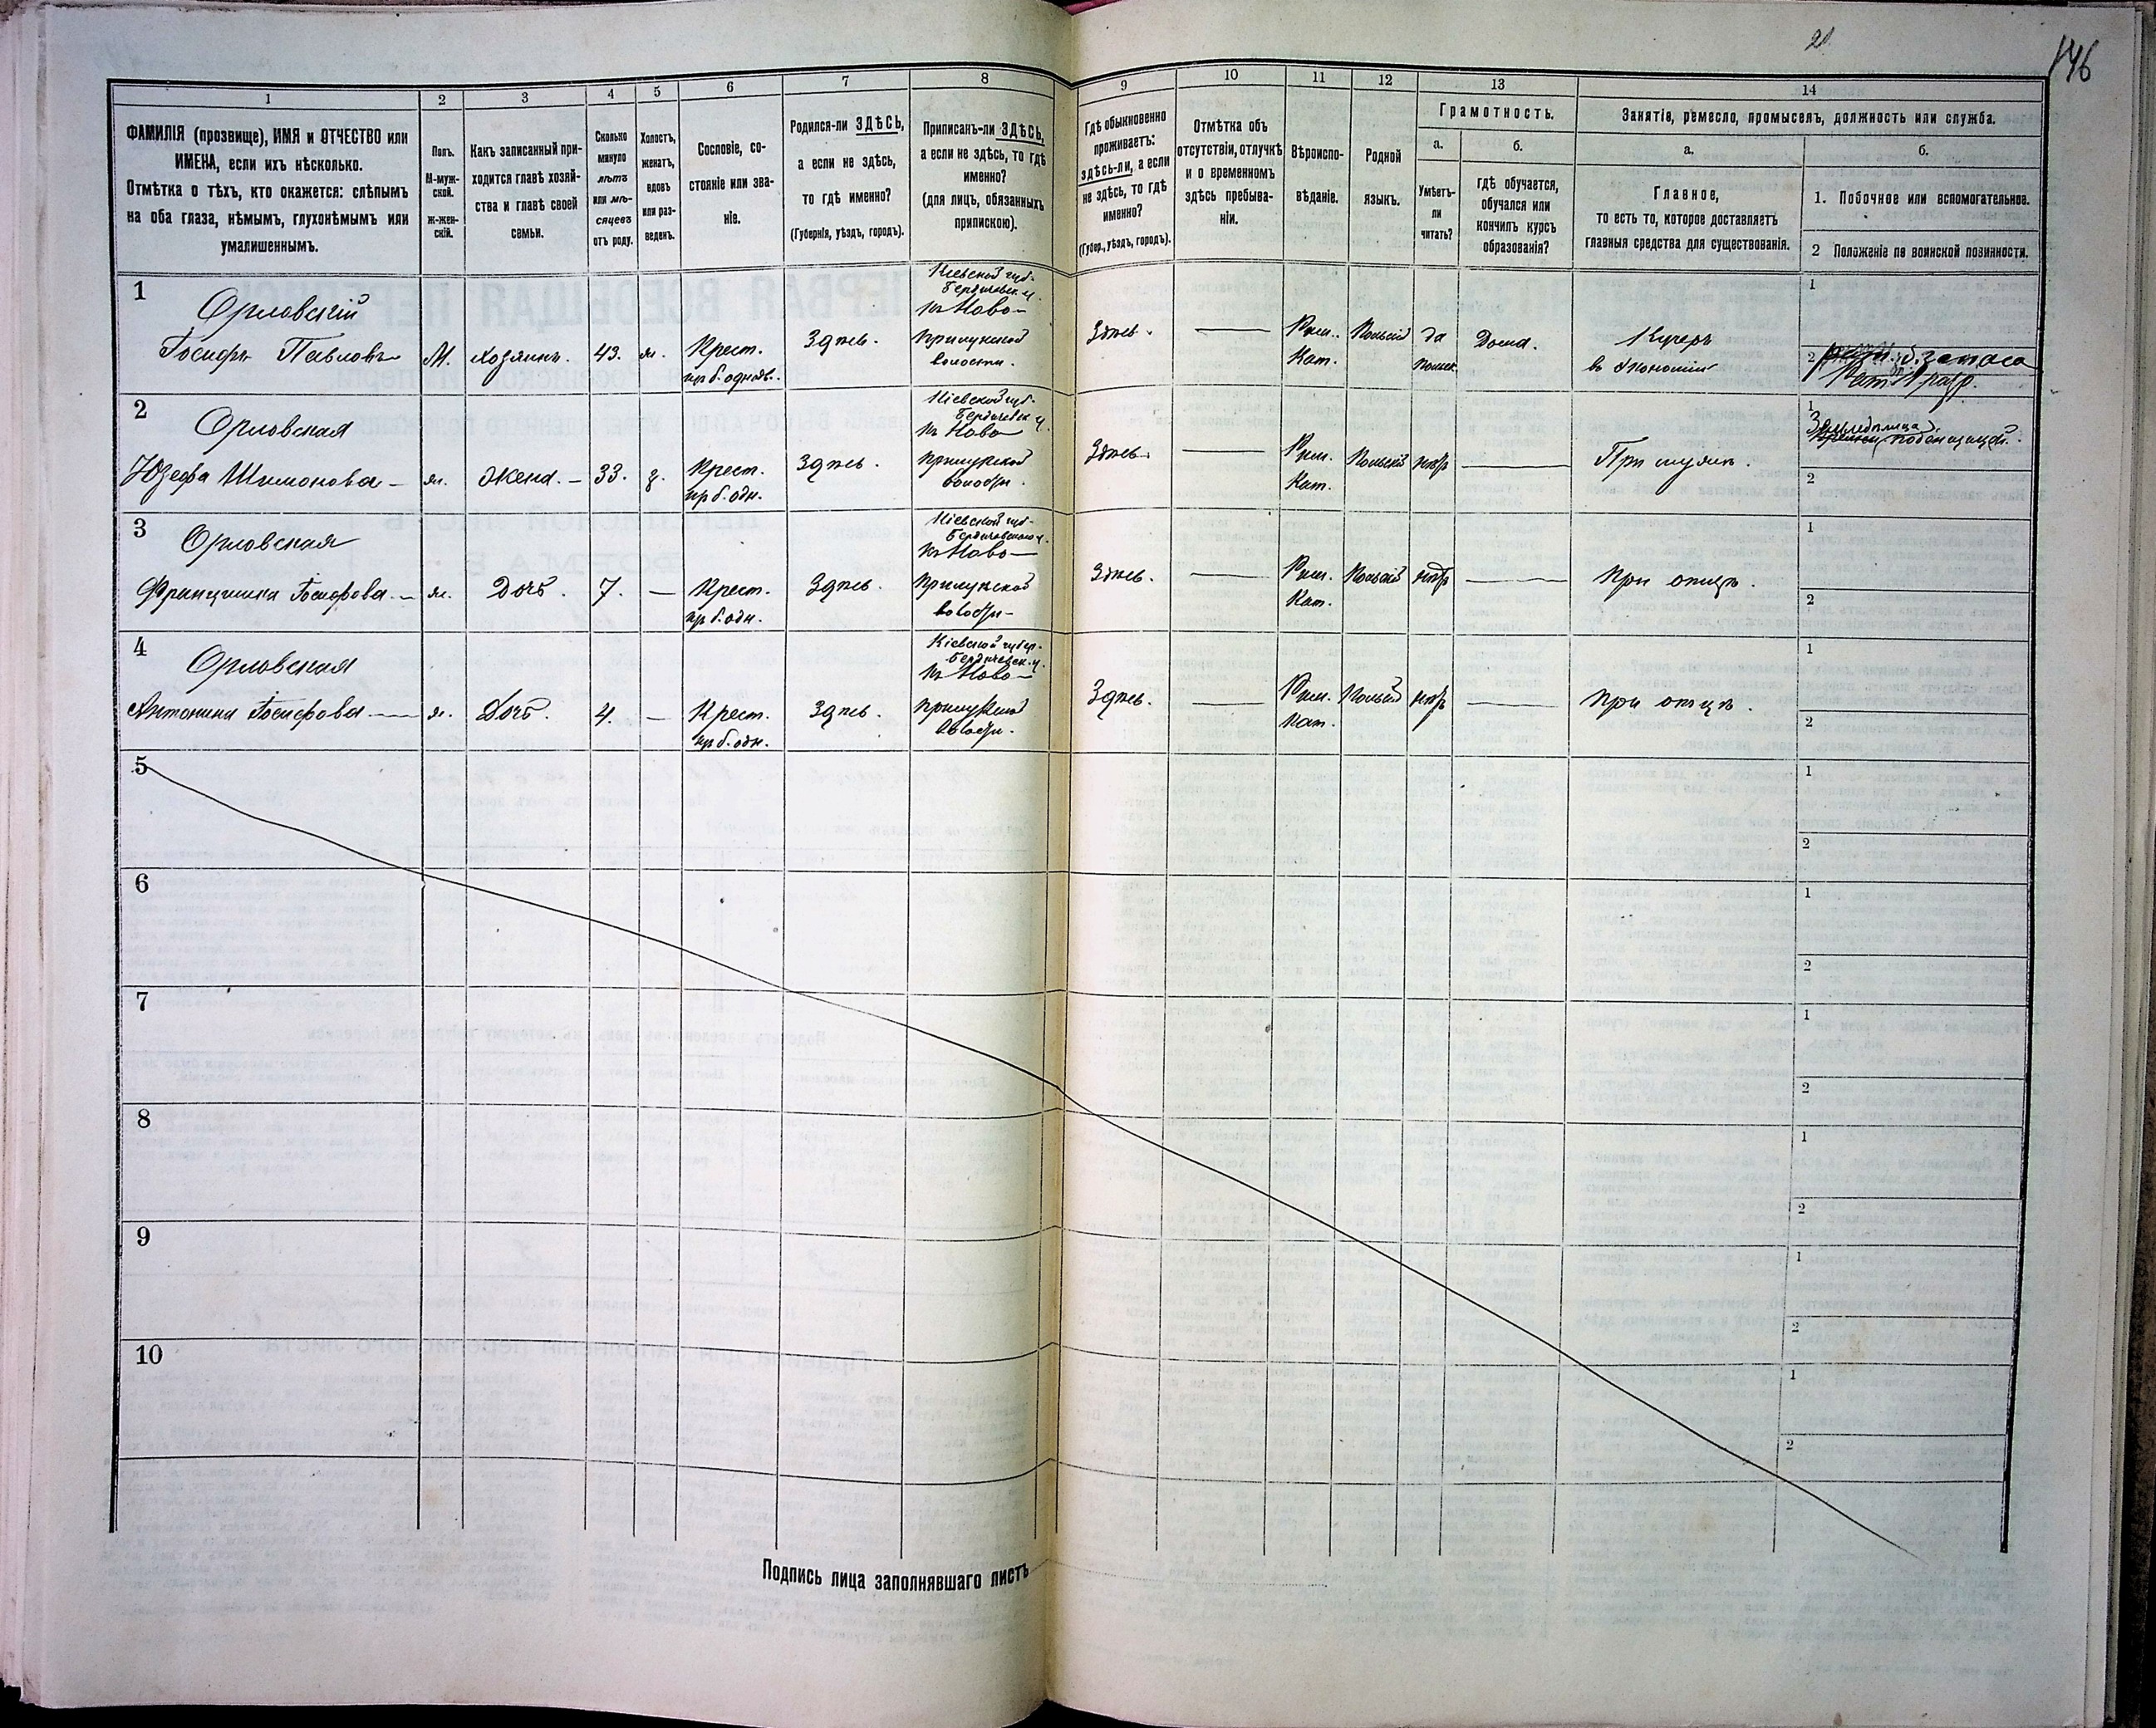 21
146
1
2
3
4
5
6
7
8
9
10
11
12
13
14
ФАМИЛІЯ (прозвище), ИМЯ и ОТЧЕСТВО или
ИМЕНА, если ихъ нѣсколько.
Отмѣтка о тѣхъ, кто окажется: слѣпымъ
на оба глаза, нѣмымъ, глухонѣмымъ или
умалишеннымъ.
Полъ.
М-муж-
ской.
Ж-жен-
скій.
Какъ записанный при-
ходится главѣ хозяй-
ства и главѣ своей
семьи.
Сколько
минуло
лѣтъ
или мѣ-
сяцевъ
отъ роду.
Холостъ,
женатъ,
вдовъ
или раз-
веденъ.
Сословіе, со-
стояніе или зва-
ніе.
Родился-ли ЗДѢСЬ,
а если не здѣсь,
то гдѣ именно?
(Губернія, уѣздъ, городъ).
Приписанъ-ли ЗДѢСЬ,
а если не здѣсь, то гдѣ
именно?
(для лицъ, обязанныхъ
припискою).
Гдѣ обыкновенно
проживаетъ:
здѣсь-ли, а если
не здѣсь, то гдѣ
именно?
(Губер., уѣздъ, городъ).
Отмѣтка объ
отсутствіи, отлучкѣ
и о временномъ
здѣсь пребыва-
ніи.
Вѣроиспо-
вѣданіе.
Родной
языкъ.
Грамотность.
а.
Умѣетъ-
ли
читать?
б.
гдѣ обучается,
обучался или
кончилъ курсъ
образованія?
Занятіе, ремесло, промыселъ, должность или служба.
а.
Главное,
то есть то, которое доставляетъ
главныя средства для существованія.
б.
1. Побочное или вспомогательное.
2 Положеніе по воинской повинности.
1
Орловскій
Іосифъ Павловъ
М.
хозяинъ.
43.
ж.
Крест.
пр б. однодв.
Здѣсь.
Кіевской губ.
Бердичевск. у.
къ Ново-
прилукской
волости.
Здѣсь.
Рим.
Кат.
Польскій
да
польск.
Дома.
Кучеръ
в экономіи
1
2
запаса
Рат. 1 разр.
2
Орловская
Юзефа Шимонова
ж.
Жена.
33.
з.
Крест.
пр б. одн.
Здѣсь.
Кіевской губ.
Бердичевск. у.
къ Ново
прилукской
волости.
Здѣсь.
Рим.
Кат.
Польскій
нѣтъ
При мужѣ.
1
Земледѣлица
поденщицей.
2
3
Орловская
Францишка Іосифова.
ж.
Дочь.
7.
Крест.
пр б. одн.
Здѣсь.
Кіевской губ.
Бердичевского у.
къ Ново
прилукской
волости
Здѣсь.
Рим.
Кат.
Польскій
нѣтъ
при отцѣ.
1
2
4
Орловская
Антонина Іосифова
ж.
Дочь.
4.
Крест.
пр б. одн.
Здѣсь.
Кіевской губер.
Бердичевск. у.
къ Ново
прилукской
волости.
Здѣсь.
Рим.
Кат.
Польскій
нѣтъ
при отцѣ.
1
2
5
1
2
6
1
2
7
1
2
8
1
2
9
1
2
10
1
2
Подпись лица заполнявшаго листъ